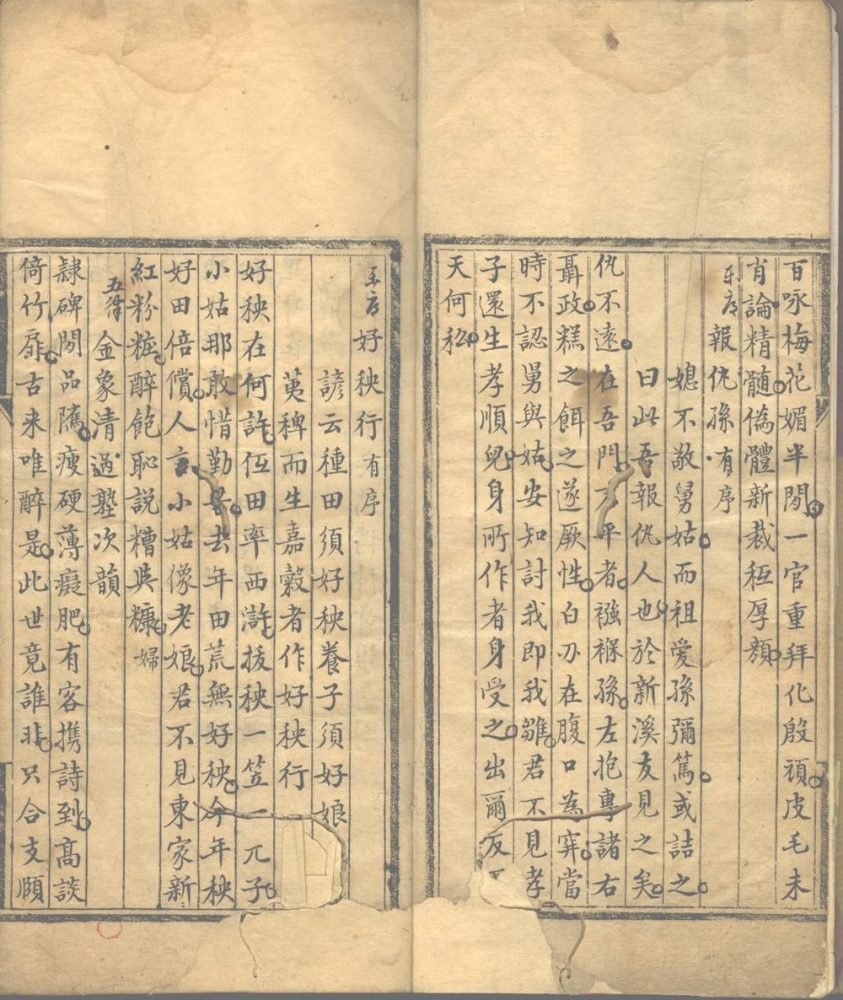 百咏梅花媚半閒一官重拜化殷頑皮毛未
肖論精髓偽體新裁秖厚顏
樂府報仇孫有序
媳不敬舅姑而祖愛孫彌篤或詰之
曰此吾報仇人也於新溪友見之矣
仇不遠在吾門不平者襁褓孫左抱專諸右
聶政糕之餌之遂厥性白刃在腹口為穽當
時不認舅與姑安知討我即我雛君不見孝
子還生孝順兒身所作者身受之出爾反
天何私
樂府好秧行有序
諺云種田須好秧養子須好娘
荑稗而生嘉穀者作好秧行
好秧在何許低田率西滸拔秧一笠一兀子
小姑那敢惜勤去年田荒無好秧今年秧
好田倍償人言小姑像老娘君不見東家新
紅粉粧醉飽恥說糟與糠婦
五律金象清過塾次韻
隸碑閒品隲瘦硬薄癡肥有客携詩到高談
倚竹扉古来唯醉是此世竟誰非只合支頤